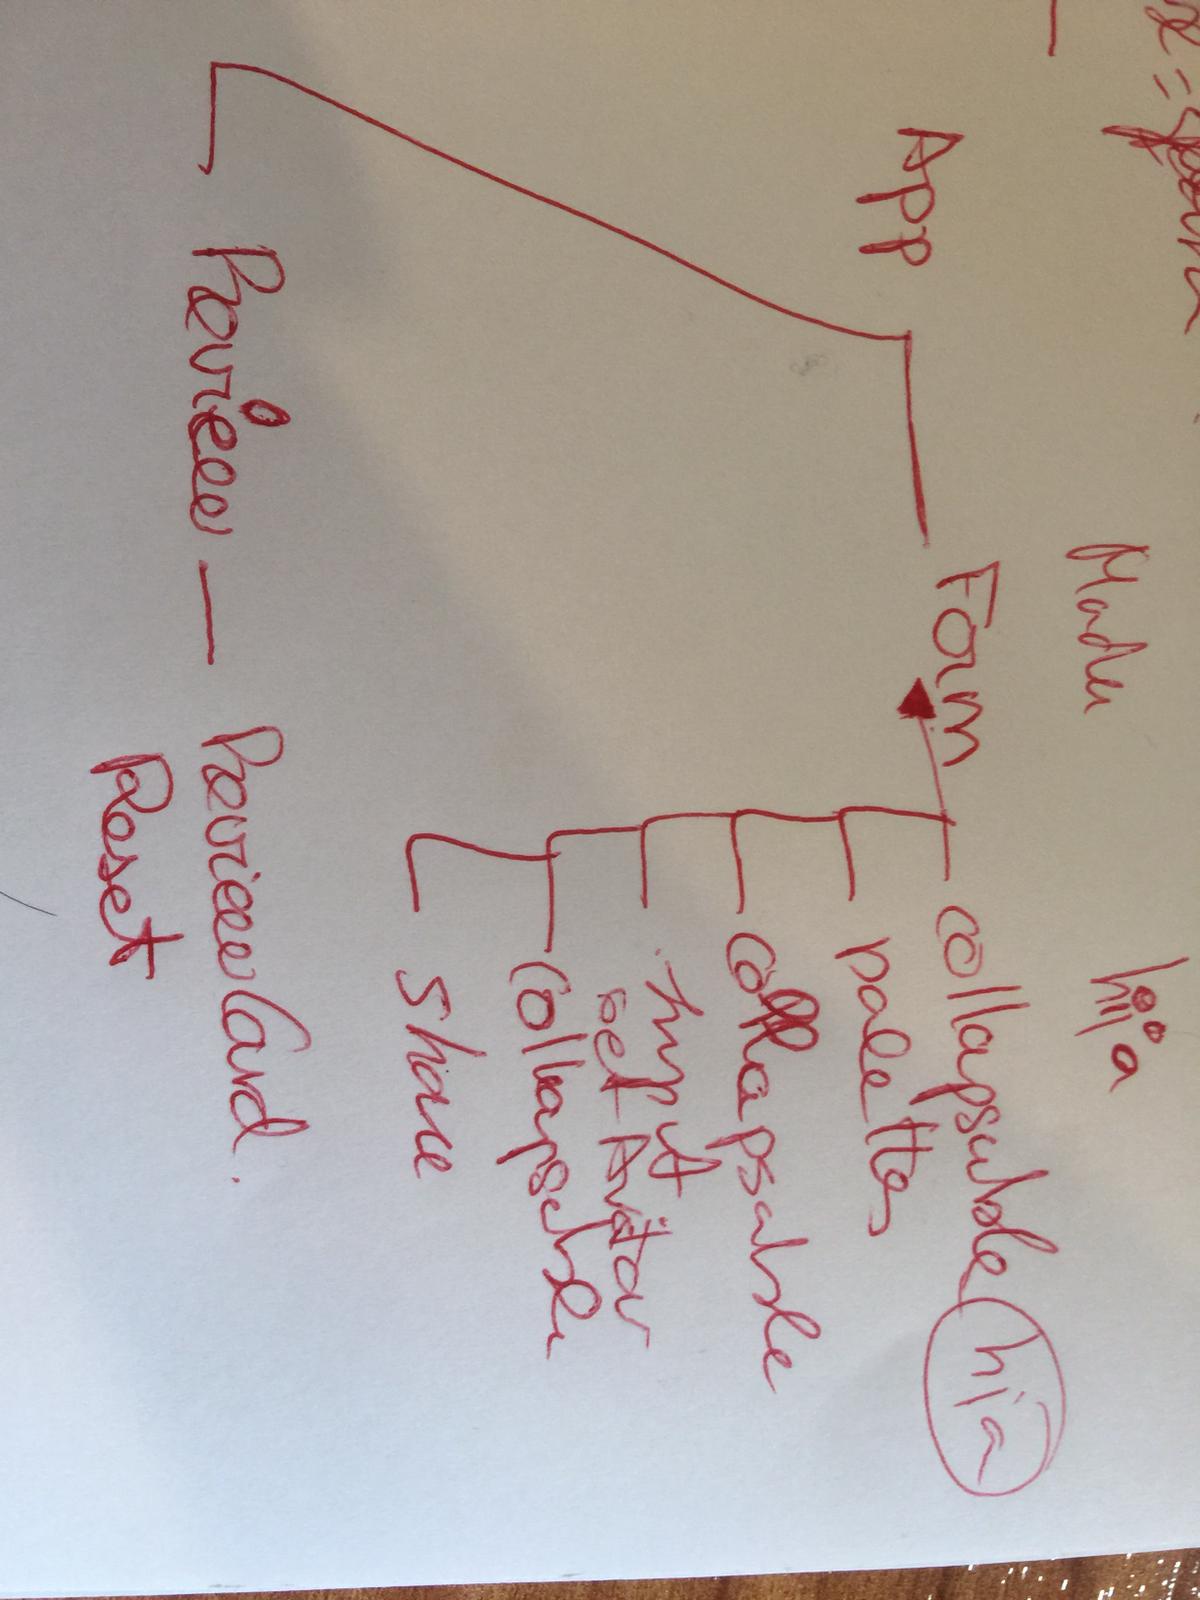 Madre
hija
App
Form
collapsable hija
paletts
collapsable
Input
GetAvatar
Collapsable
Share
Preview
PreviewCard.
Reset